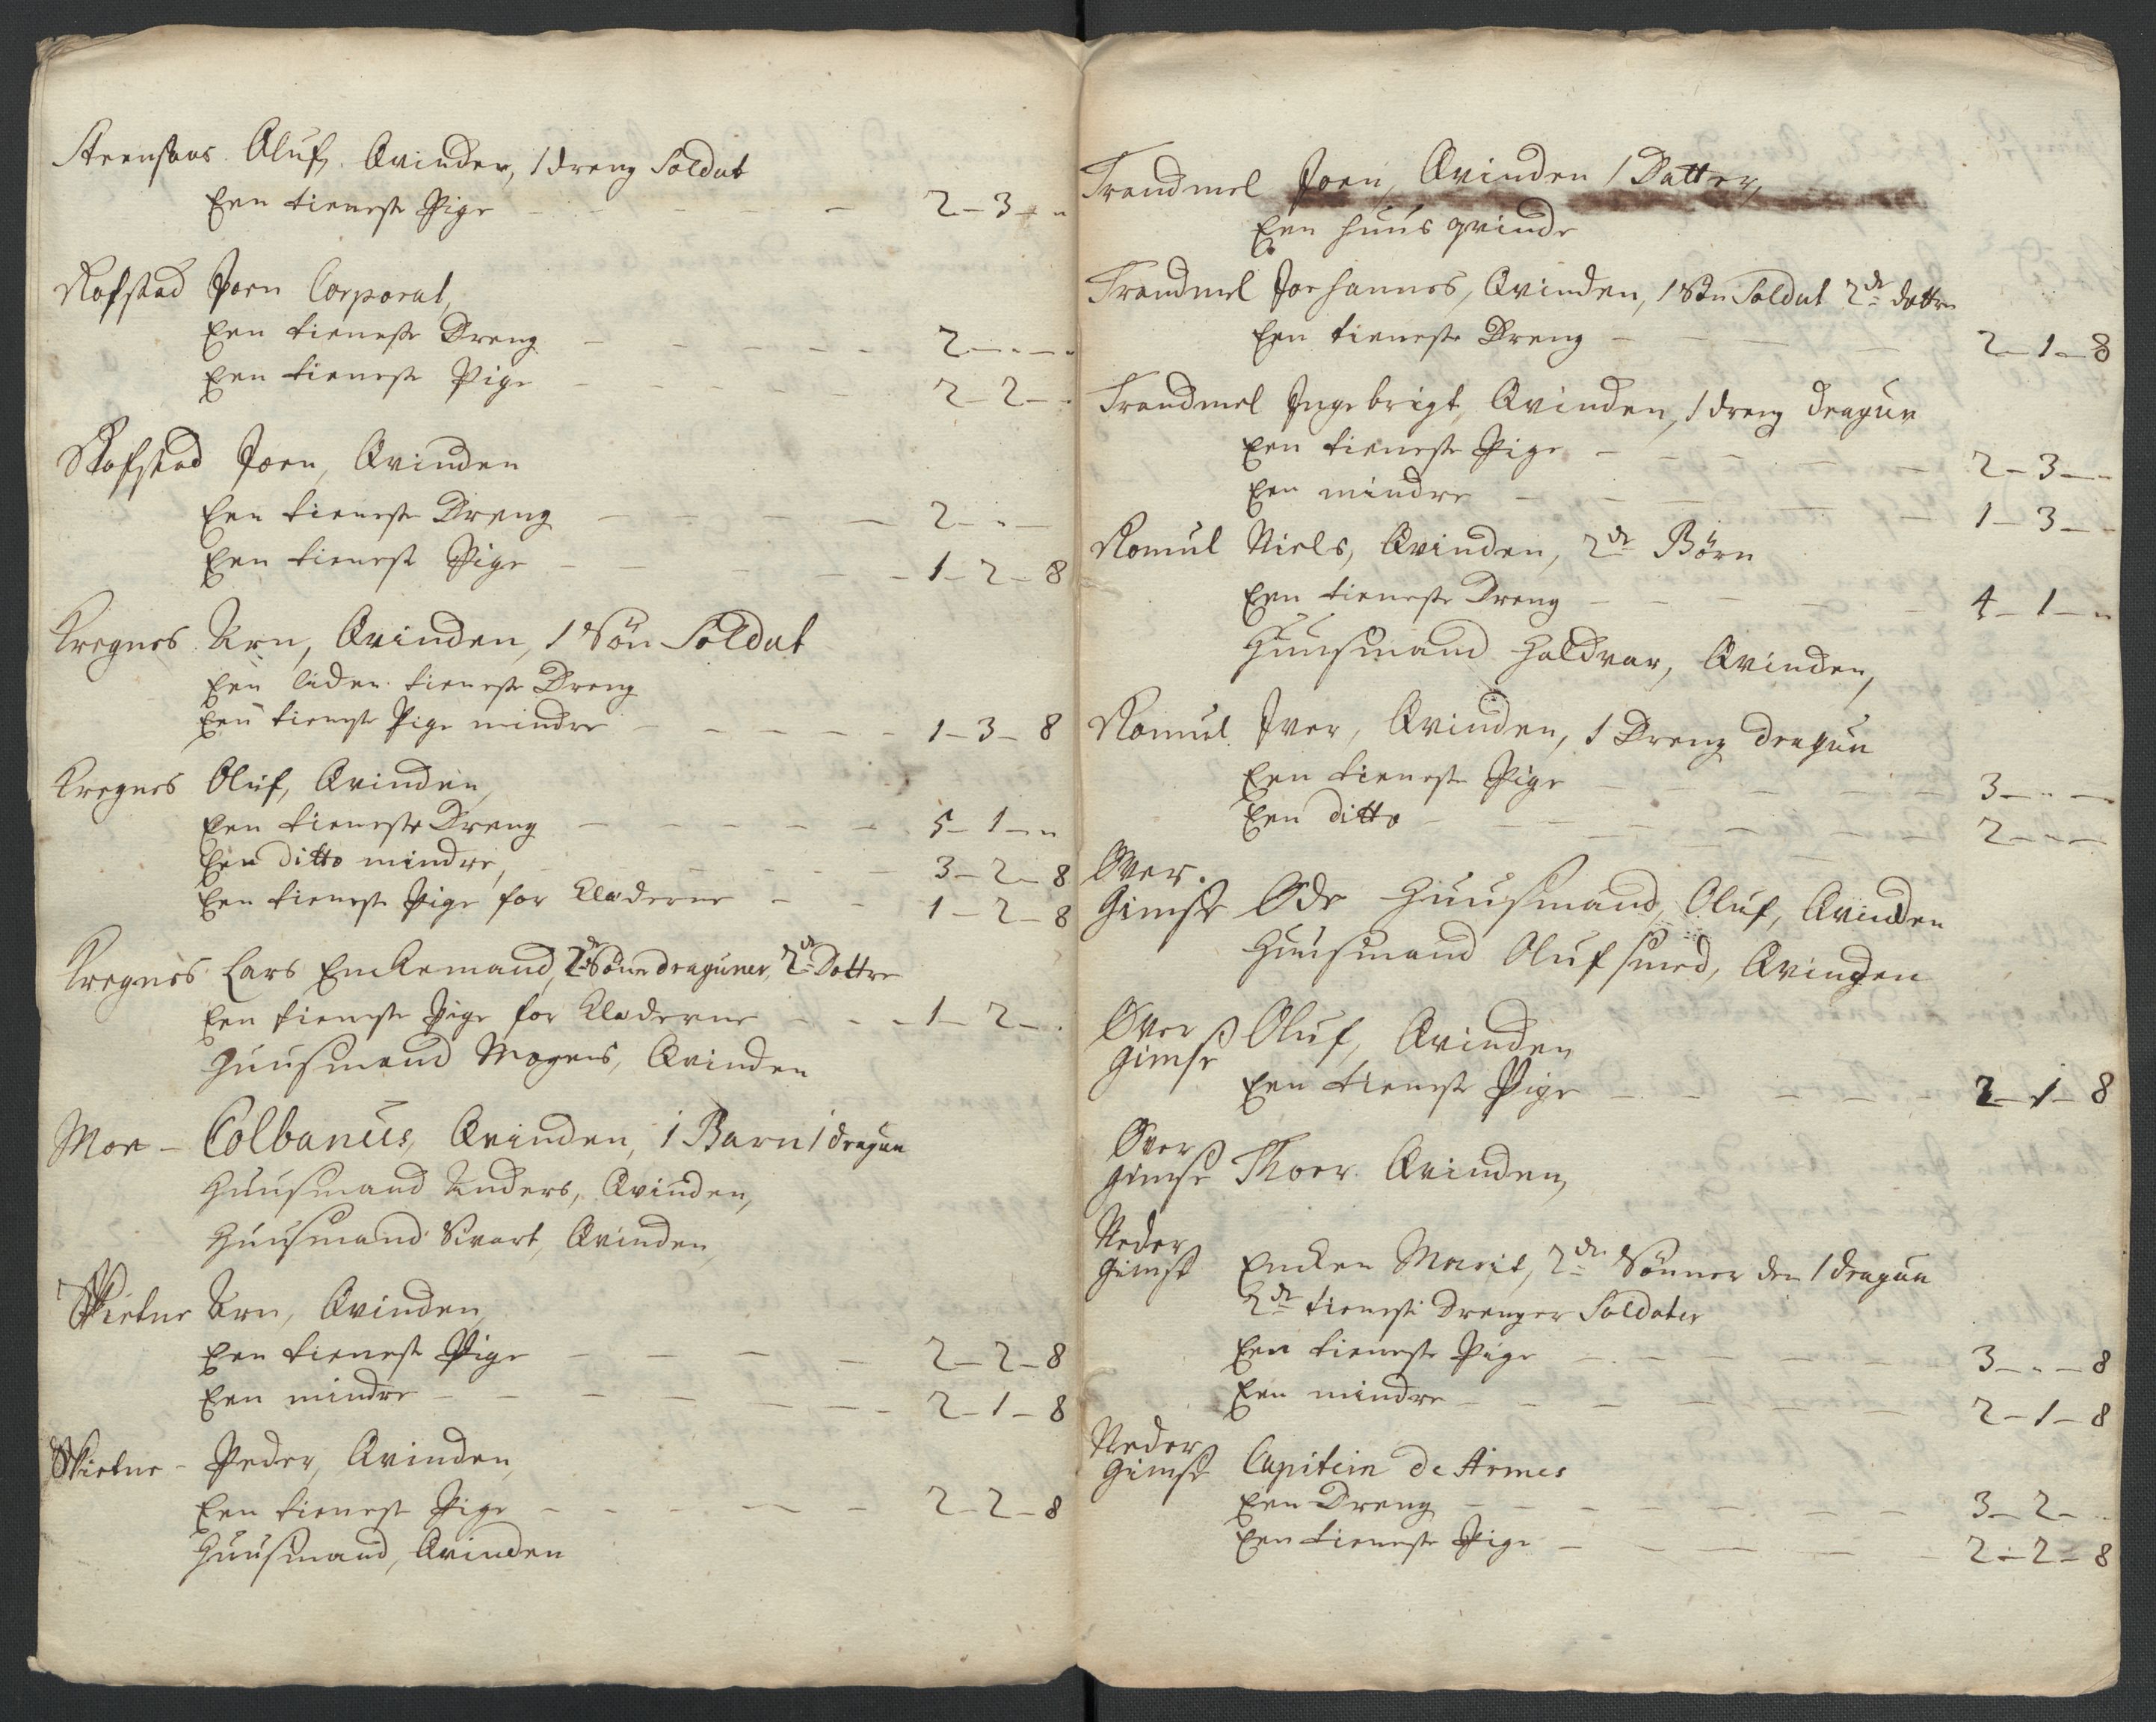 Steensaas Oluf, Qvinden, 1 dreng Soldat
Een tieneste Pige 2 - 3 - "
Rofstad Joen Corporal,
Een tieneste Dreng 2 - " - "
Een tieneste Pige 2 - 2 - "
Rofstad Joen, Qvinden
Een tieneste Dreng 2 - " -
Een tienest Pige 1 - 2 - 8
Kregnes Arn, Qvinden, 1 Søn Soldat
Een liden tieneste Dreng
Een tieneste Pige mindre 1 - 3 - 8
Kregnes Oluf, Qvinden,
Een tieneste Dreng 5 - 1 - "
Een ditto mindre, 3 - 2 - 8
Een tieneste Pige for Klæderne 1 - 2 - 8
Kregnes Lars Enckemand, 2de Sønr draguner, 2de Dottre
Een tieneste Pige for Klæderne 1 - 2 - "
Huusmand Mogens, Qvinden
Moe - Colbanus, Qvinden, 1 Barn 1 dragun
Huusmand Anders, Qvinden,
Huusmand Sivart, Qvinden,
Skietne Arn, Qvinden,
Een tieneste Pige 2 - 2 - 8
Een mindre 2 - 1 - 8
Skietne - Peder, Qvinden,
Een tienest Pige 2 - 2 - 8
Huusmand, Qvinden
Trandmel Joen, Qvinden 1 Datter,
Een huus qvinde
Trandmel Joehannes, Qvinden, 1 Søn Soldat 2de dottre
Een tieneste Dreng 2 - 1 - 8
Trandmel Ingebrigt, Qvinden, 1 dreng dragun
Een tieneste Pige 2 - 3 - "
Een mindre 1 - 3 - "
Romul Niels, Qvinden, 2de Børn
Een tieneste Dreng 4 - 1 - "
Huusmand Haldvar, Qvinden,
Romul Iver, Qvinden, 1 Dreng dragun
Een tieneste Pige 3 - " -
Een ditto 2 - " -
Øver
Gimse Øde Huusmand, Oluf, Qvinden
Huusmand Oluf smed, Qvinden
Øver
Gimse Oluf, Qvinden
Een tieneste Pige 2 - 1 - 8
Øver
Gimse Thoer Qvinden,
Neder
Gimse Encken Marit, 2de Sønner den 1 dragun
2de tieneste Drenger Soldater
Een tieneste Pige 3 - " - 8
Een mindre 2 - 1 - 8
Neder
Gimse Capitein de Armes
Een Dreng 3 - 2 - "
Een tieneste Pige 2 - 2 - 8